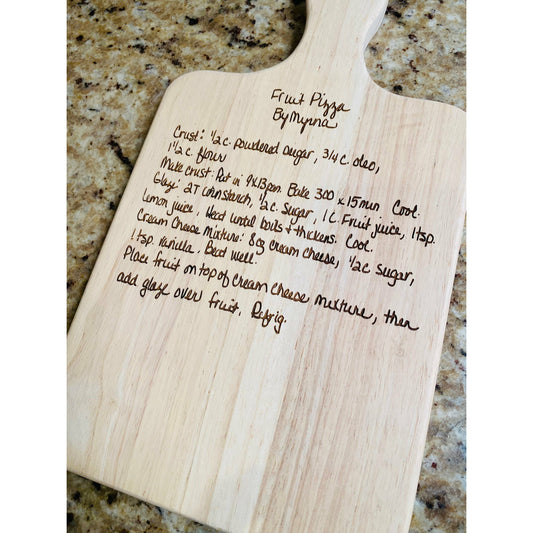 Fruit Pizza
By Myrna
Crust: 1/2 c. powdered sugar, 3/4 c. oleo,
1 1/2 c. flour
Make crust: Pat in 9x13 pan. Bake 300 x 15 min. Cool.
Glaze: 2T cornstarch, 1/2 c. sugar, 1 c. Fruit juice, 1 tsp.
lemon juice, Heat until boils & thickens. Cool.
Cream Cheese Mixture: 8 oz cream cheese, 1/2 c sugar,
1 tsp. vanilla. Beat well.
Place fruit on top of cream cheese mixture, then
add glaze over fruit. Refrig.